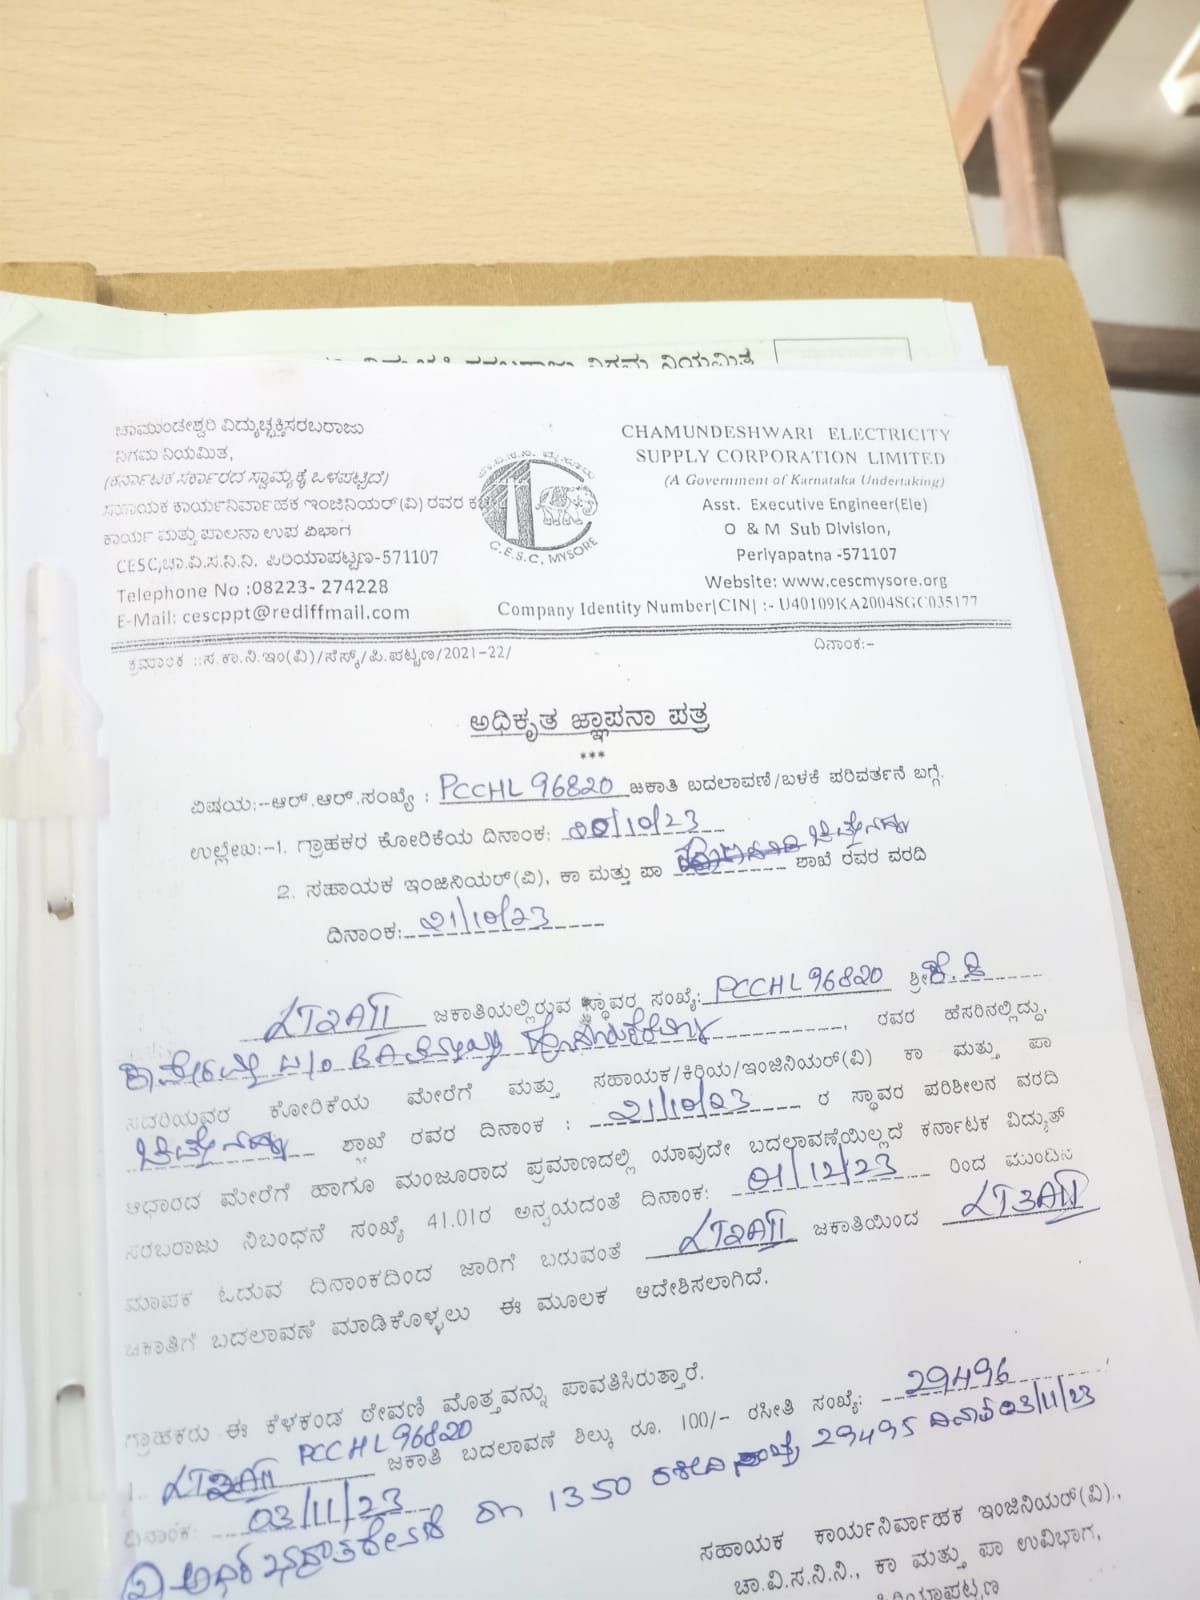 ಚಾಮುಂಡೇಶ್ವರಿ ವಿದ್ಯುಚ್ಛಕ್ತಿಸರಬರಾಜು
ನಿಗಮ ನಿಯಮಿತ,
(ಕರ್ನಾಟಕ ಸರ್ಕಾರದ ಸ್ವಾಮ್ಯಕ್ಕೆ ಒಳಪಟ್ಟಿದೆ)
ಸಹಾಯಕ ಕಾರ್ಯನಿರ್ವಾಹಕ ಇಂಜಿನಿಯರ್(ವಿ) ರವರ
ಕಾರ್ಯ ಮತ್ತು ಪಾಲನಾ ಉಪ ವಿಭಾಗ
CESC,ಚಾ.ವಿ.ಸ.ನಿ.ನಿ. ಪಿರಿಯಾಪಟ್ಟಣ-571107
Telephone No :08223- 274228
E-Mail: cescppt@rediffmail.com
C.E.S.C, MYSORE
CHAMUNDESHWARI ELECTRICITY
SUPPLY CORPORATION LIMITED
(A Government of Karnataka Undertaking)
Asst. Executive Engineer(Ele)
O & M Sub Division,
Periyapatna -571107
Website: www.cescmysore.org
Company Identity Number[CIN] :- U40109KA2004SGC035177
ಕ್ರಮಾಂಕ ::ಸ.ಕಾ.ನಿ.ಇಂ(ವಿ)/ಸೆಸ್ಕ್/ಪಿ.ಪಟ್ಟಣ/2021-22/ ದಿನಾಂಕ:-
ಅಧಿಕೃತ ಜ್ಞಾಪನಾ ಪತ್ರ
***
ವಿಷಯ:-ಆರ್.ಆರ್.ಸಂಖ್ಯೆ : PCCHL 96820 ಜಕಾತಿ ಬದಲಾವಣೆ/ಬಳಕೆ ಪರಿವರ್ತನೆ ಬಗ್ಗೆ.
ಉಲ್ಲೇಖ:-1. ಗ್ರಾಹಕರ ಕೋರಿಕೆಯ ದಿನಾಂಕ: /10/23
2. ಸಹಾಯಕ ಇಂಜಿನಿಯರ್(ವಿ), ಕಾ ಮತ್ತು ಪಾ ಶಾಖೆ ರವರ ವರದಿ
ದಿನಾಂಕ: 21/10/23
LT2AII ಜಕಾತಿಯಲ್ಲಿರುವ ಸ್ಥಾವರ ಸಂಖ್ಯೆ: PCCHL 96820 ಶ್ರೀ
ರವರ ಹೆಸರಿನಲ್ಲಿದ್ದು,
ಸದರಿಯವರ ಕೋರಿಕೆಯ ಮೇರೆಗೆ ಮತ್ತು ಸಹಾಯಕ/ಕಿರಿಯ/ಇಂಜಿನಿಯರ್(ವಿ) ಕಾ ಮತ್ತು ಪಾ
ಶಾಖೆ ರವರ ದಿನಾಂಕ : 21/10/23 ರ ಸ್ಥಾವರ ಪರಿಶೀಲನ ವರದಿ
ಆಧಾರದ ಮೇರೆಗೆ ಹಾಗೂ ಮಂಜೂರಾದ ಪ್ರಮಾಣದಲ್ಲಿ ಯಾವುದೇ ಬದಲಾವಣೆಯಿಲ್ಲದೆ ಕರ್ನಾಟಕ ವಿದ್ಯುತ್
ಸರಬರಾಜು ನಿಬಂಧನೆ ಸಂಖ್ಯೆ 41.01ರ ಅನ್ವಯದಂತೆ ದಿನಾಂಕ: 01/12/23 ರಿಂದ ಮುಂದಿನ
ಮಾಪಕ ಓದುವ ದಿನಾಂಕದಿಂದ ಜಾರಿಗೆ ಬರುವಂತೆ LT2AII ಜಕಾತಿಯಿಂದ LT3AII
ಜಕಾತಿಗೆ ಬದಲಾವಣೆ ಮಾಡಿಕೊಳ್ಳಲು ಈ ಮೂಲಕ ಆದೇಶಿಸಲಾಗಿದೆ.
ಗ್ರಾಹಕರು ಈ ಕೆಳಕಂಡ ಠೇವಣಿ ಮೊತ್ತವನ್ನು ಪಾವತಿಸಿರುತ್ತಾರೆ.
PCCHL 96820
1. ಜಕಾತಿ ಬದಲಾವಣೆ ಶಿಲ್ಕು ರೂ. 100/- ರಸೀತಿ ಸಂಖ್ಯೆ: 29496
ದಿನಾಂಕ: 03/11/23
1350 29495 03/11/23
ಸಹಾಯಕ ಕಾರ್ಯನಿರ್ವಾಹಕ ಇಂಜಿನಿಯರ್(ವಿ).,
ಚಾ.ವಿ.ಸ.ನಿ.ನಿ., ಕಾ ಮತ್ತು ಪಾ ಉವಿಭಾಗ,